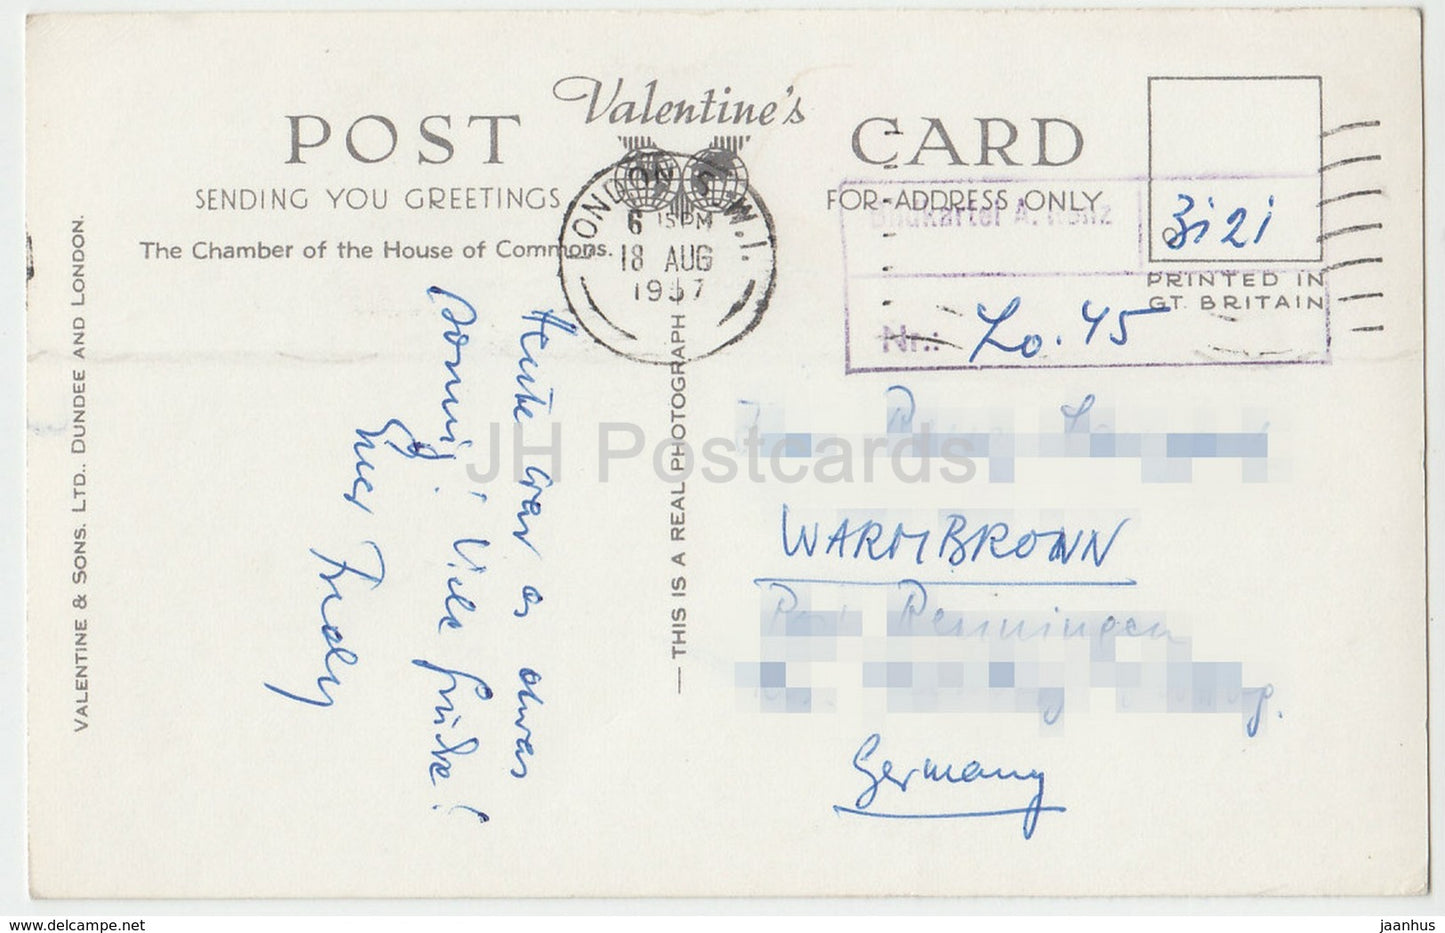 Valentine's
POST CARD
SENDING YOU GREETINGS
FOR ADDRESS ONLY
The Chamber of the House of Commons.
LONDON S.W.1.
6 15 PM
18 AUG
1957
Bildkartei A.
Nr.: Lo. 45
3i2i
PRINTED IN
GT. BRITAIN
VALENTINE & SONS. LTD., DUNDEE AND LONDON.
— THIS IS A REAL PHOTOGRAPH
Heute war es etwas
sonnig! Viele Grüße!
Euer Fredy
WARMBRONN
Renningen
Germany
JH Postcards
www.delcampe.net
jaanhus